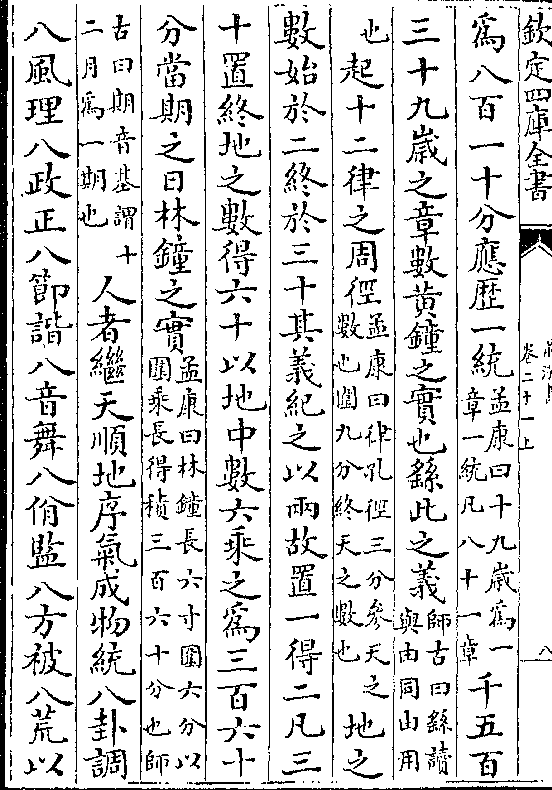 欽定四庫全書
卷二十一上
八
爲八百一十分應歴一統孟康曰十九嵗爲一章一統凡八十一章千五百
三十九嵗之章數黃鐘之實也繇此之義師古曰繇讀與由同由用
也起十二律之周徑孟康曰律孔徑三分參天之數也圍九分終天之數也地之
數始於二終於三十其義紀之以兩故置一得二凡三
十置終地之數得六十以地中數六乘之爲三百六十
分當期之日林鐘之實孟康曰林鐘長六寸圍六分以圍乘長得積三百六十分也師
古曰期音基謂十二月爲一期也人者繼天順地序氣成物統八卦調
八風理八政正八節諧八音舞八佾監八方被八荒以